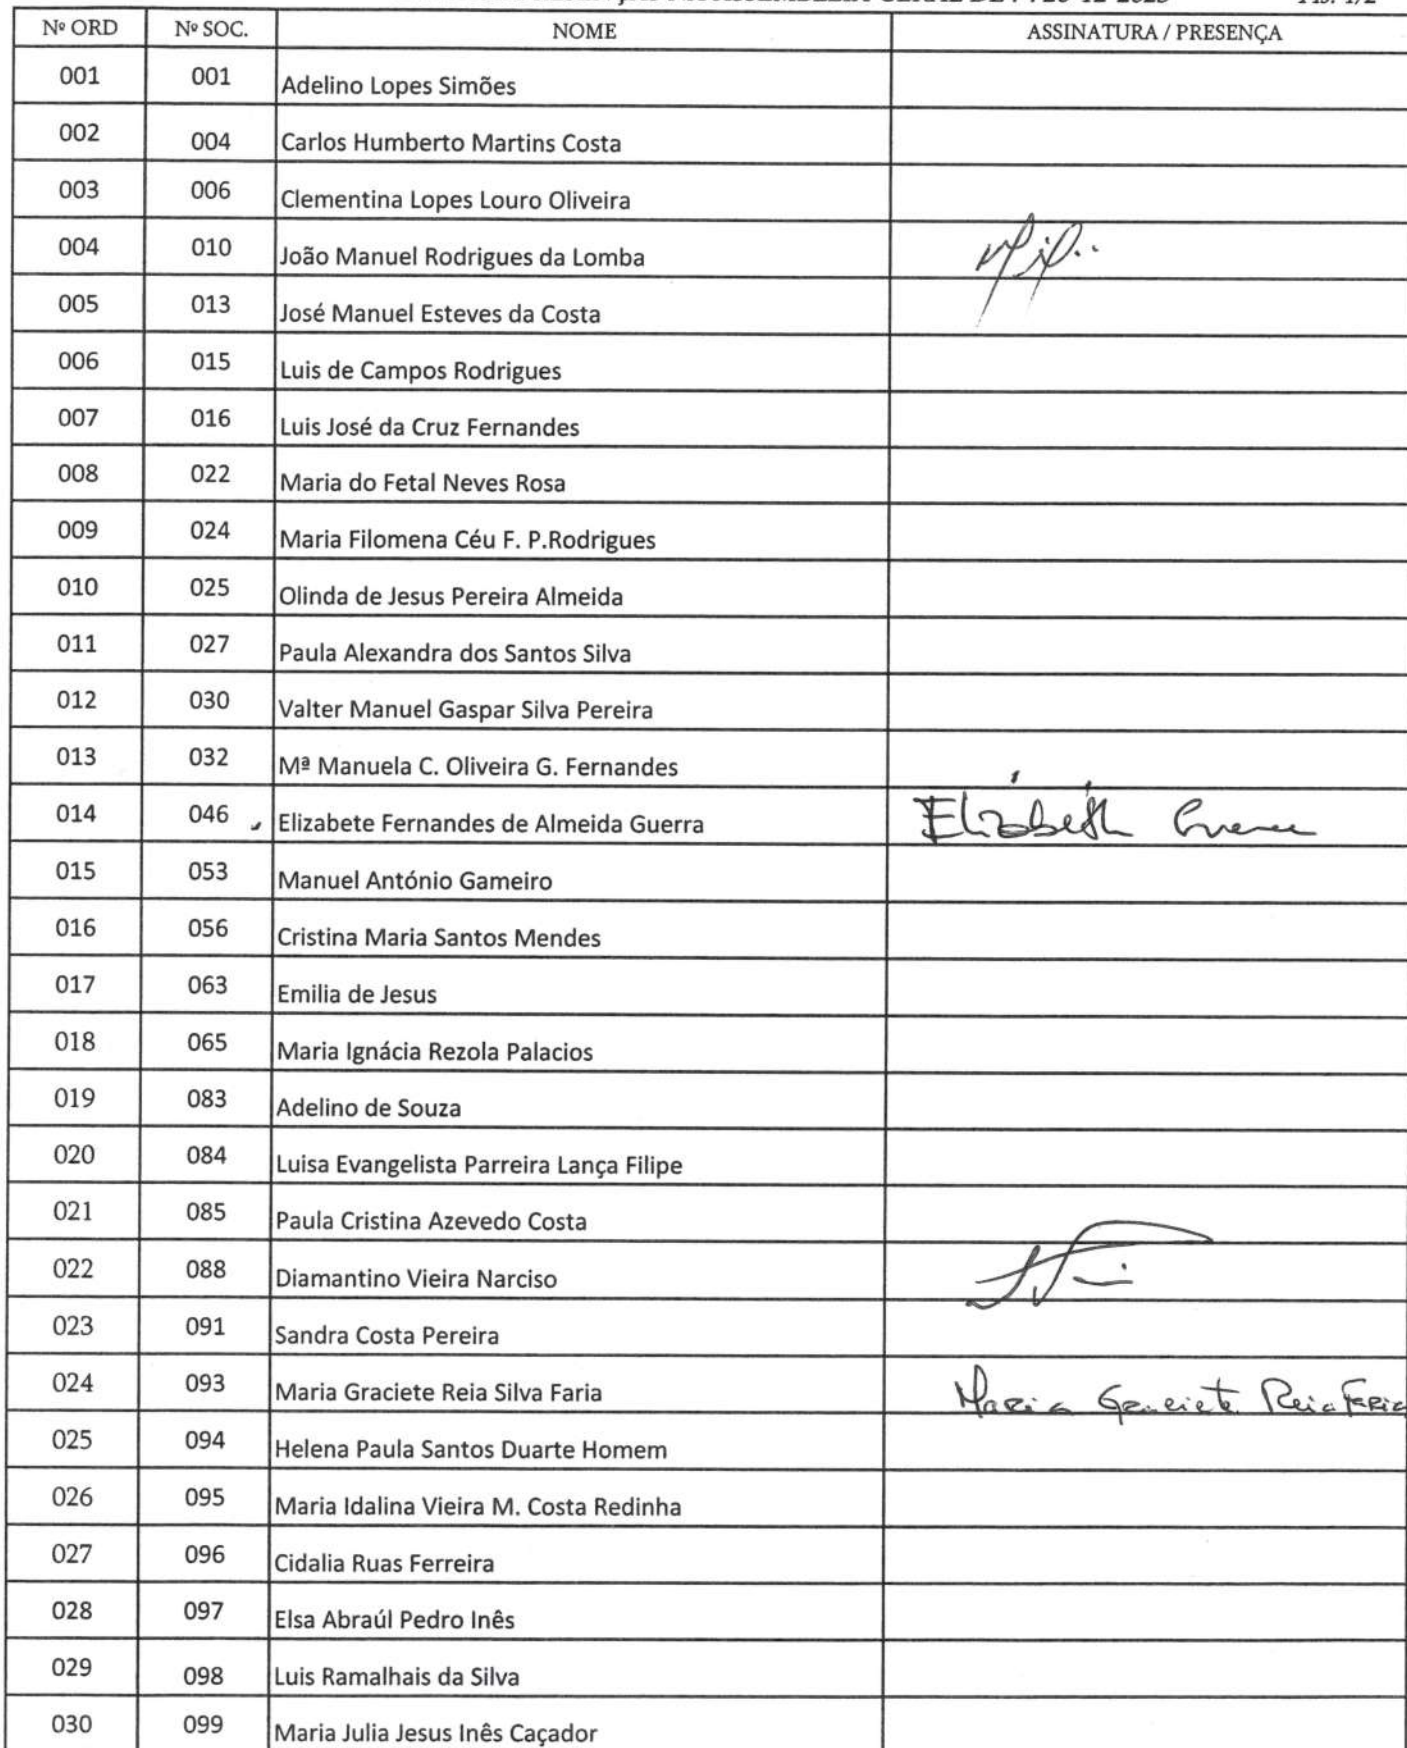 ASSEMBLEIA GERAL DE
Nº ORD Nº SOC. NOME ASSINATURA / PRESENÇA
001 001 Adelino Lopes Simões
002 004 Carlos Humberto Martins Costa
003 006 Clementina Lopes Louro Oliveira
004 010 João Manuel Rodrigues da Lomba
005 013 José Manuel Esteves da Costa
006 015 Luis de Campos Rodrigues
007 016 Luis José da Cruz Fernandes
008 022 Maria do Fetal Neves Rosa
009 024 Maria Filomena Céu F. P.Rodrigues
010 025 Olinda de Jesus Pereira Almeida
011 027 Paula Alexandra dos Santos Silva
012 030 Valter Manuel Gaspar Silva Pereira
013 032 Mª Manuela C. Oliveira G. Fernandes
014 046 Elizabete Fernandes de Almeida Guerra
015 053 Manuel António Gameiro
016 056 Cristina Maria Santos Mendes
017 063 Emilia de Jesus
018 065 Maria Ignácia Rezola Palacios
019 083 Adelino de Souza
020 084 Luisa Evangelista Parreira Lança Filipe
021 085 Paula Cristina Azevedo Costa
022 088 Diamantino Vieira Narciso
023 091 Sandra Costa Pereira
024 093 Maria Graciete Reia Silva Faria Maria Graciete Reia Faria
025 094 Helena Paula Santos Duarte Homem
026 095 Maria Idalina Vieira M. Costa Redinha
027 096 Cidalia Ruas Ferreira
028 097 Elsa Abraúl Pedro Inês
029 098 Luis Ramalhais da Silva
030 099 Maria Julia Jesus Inês Caçador